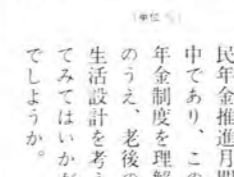 （単位 %）
民年金推進月間
中であり、この
年金制度を理解
のうえ、老後の
生活設計を考え
てみてはいかが
でしようか。